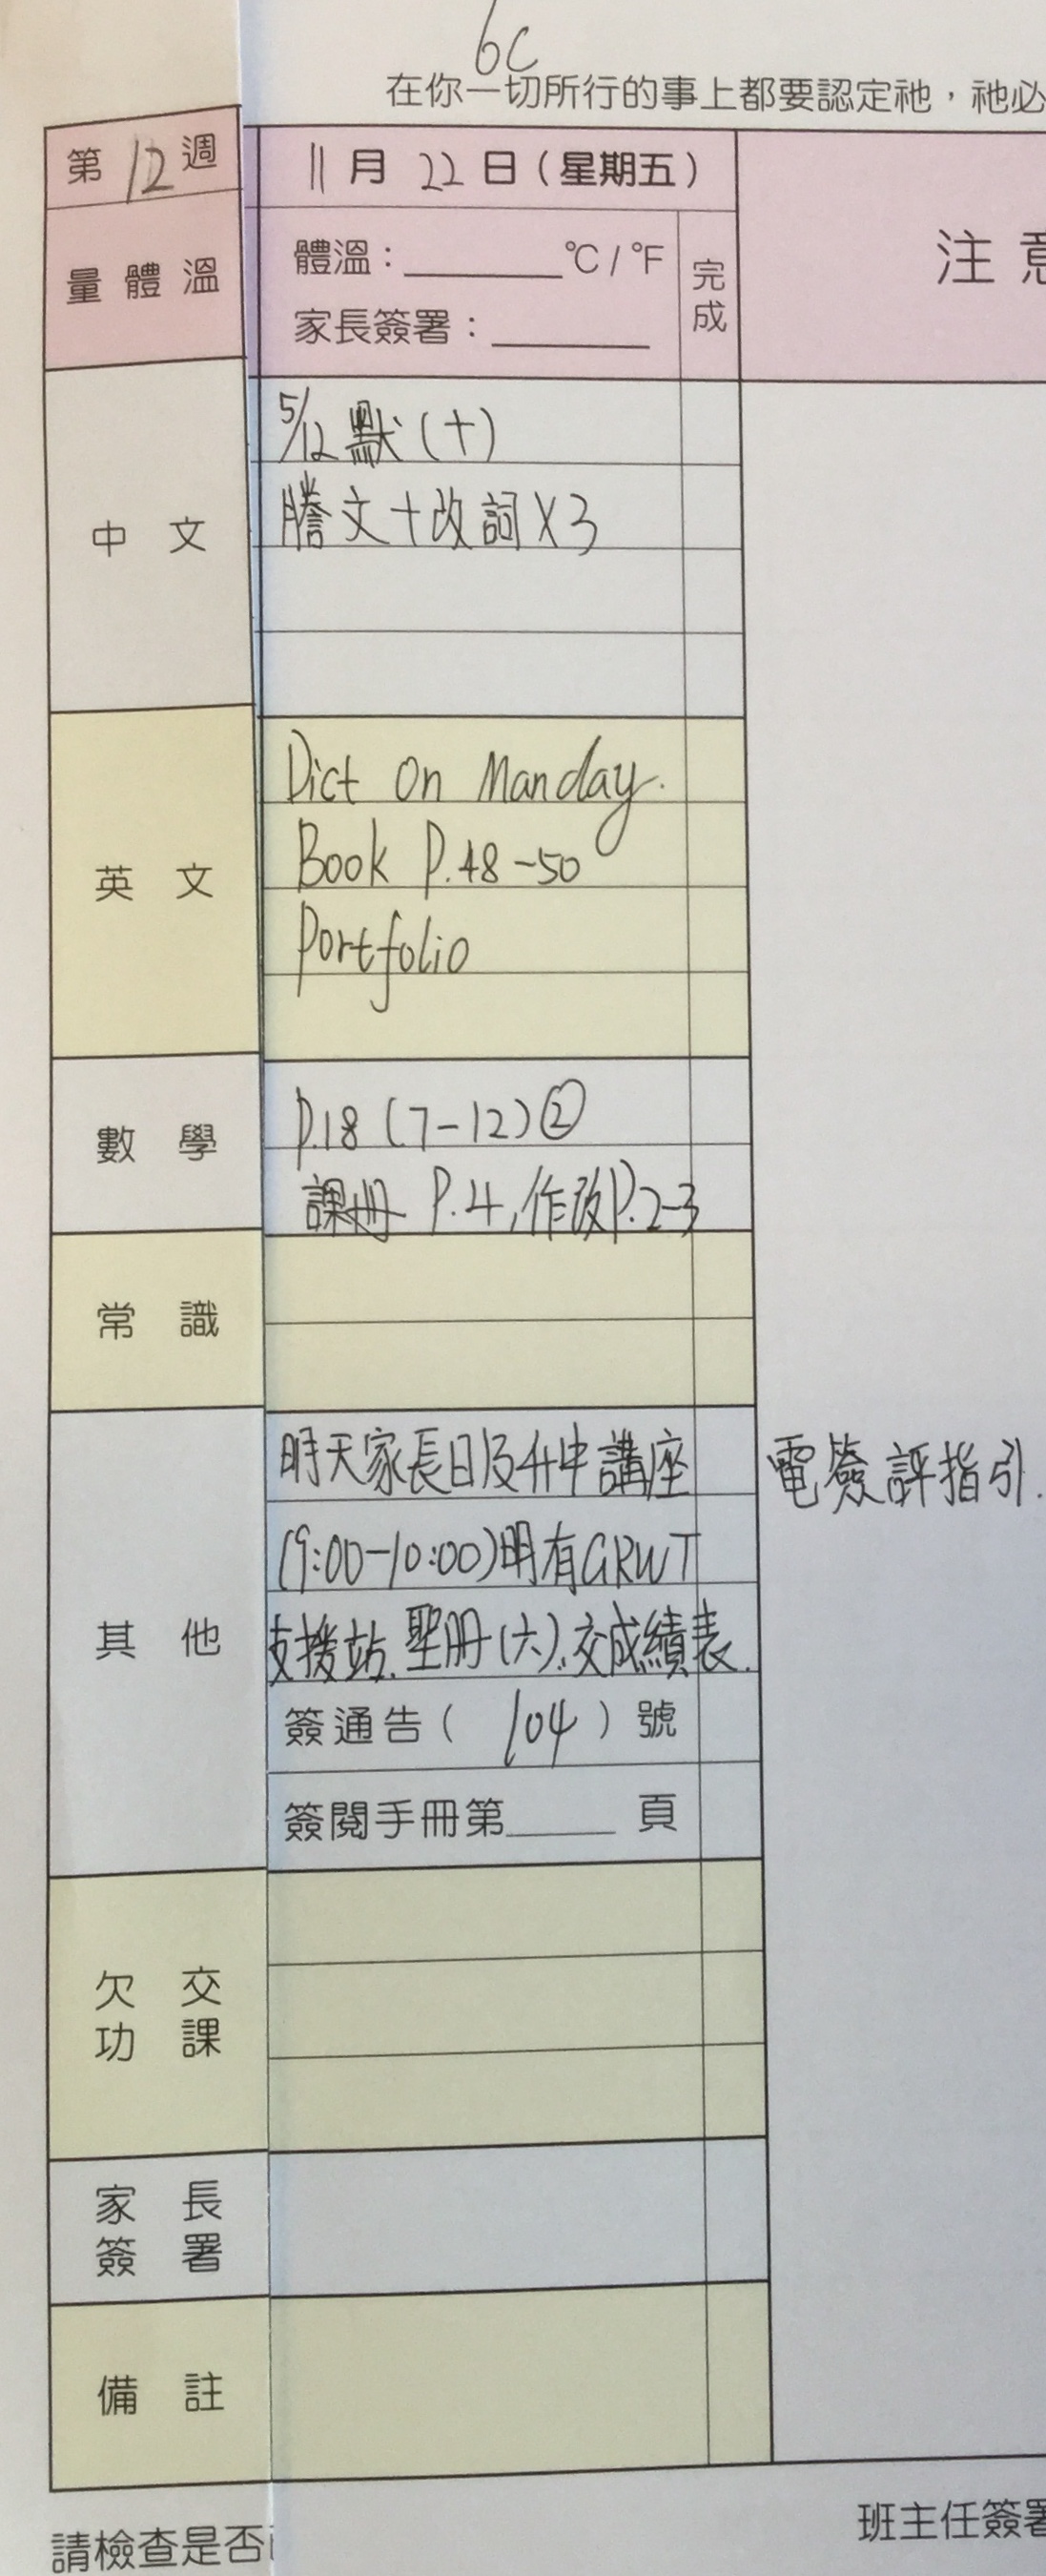 6C
在你一切所行的事上都要認定祂，祂必
第12週
11月22日(星期五)
量體溫
體溫：______°C/°F
家長簽署：______
完成
注意
中文
5/12 默(十)
謄文+改詞X3
英文
Dict On Manday.
Book P.48-50
Portfolio
數學
P.18 (7-12)②
課冊 P.4,作改P.2-3
常識
其他
明天家長日及升中講座
電簽評指引.
(9:00-10:00)明有GRWT
支援站.聖冊(六).交成績表.
簽通告( 104 )號
簽閱手冊第_____頁
欠交功課
家長簽署
備註
班主任簽署
請檢查是否